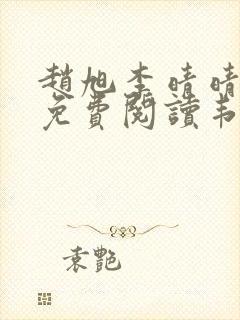 趙旭李晴晴
免費閱讀韦
袁艷